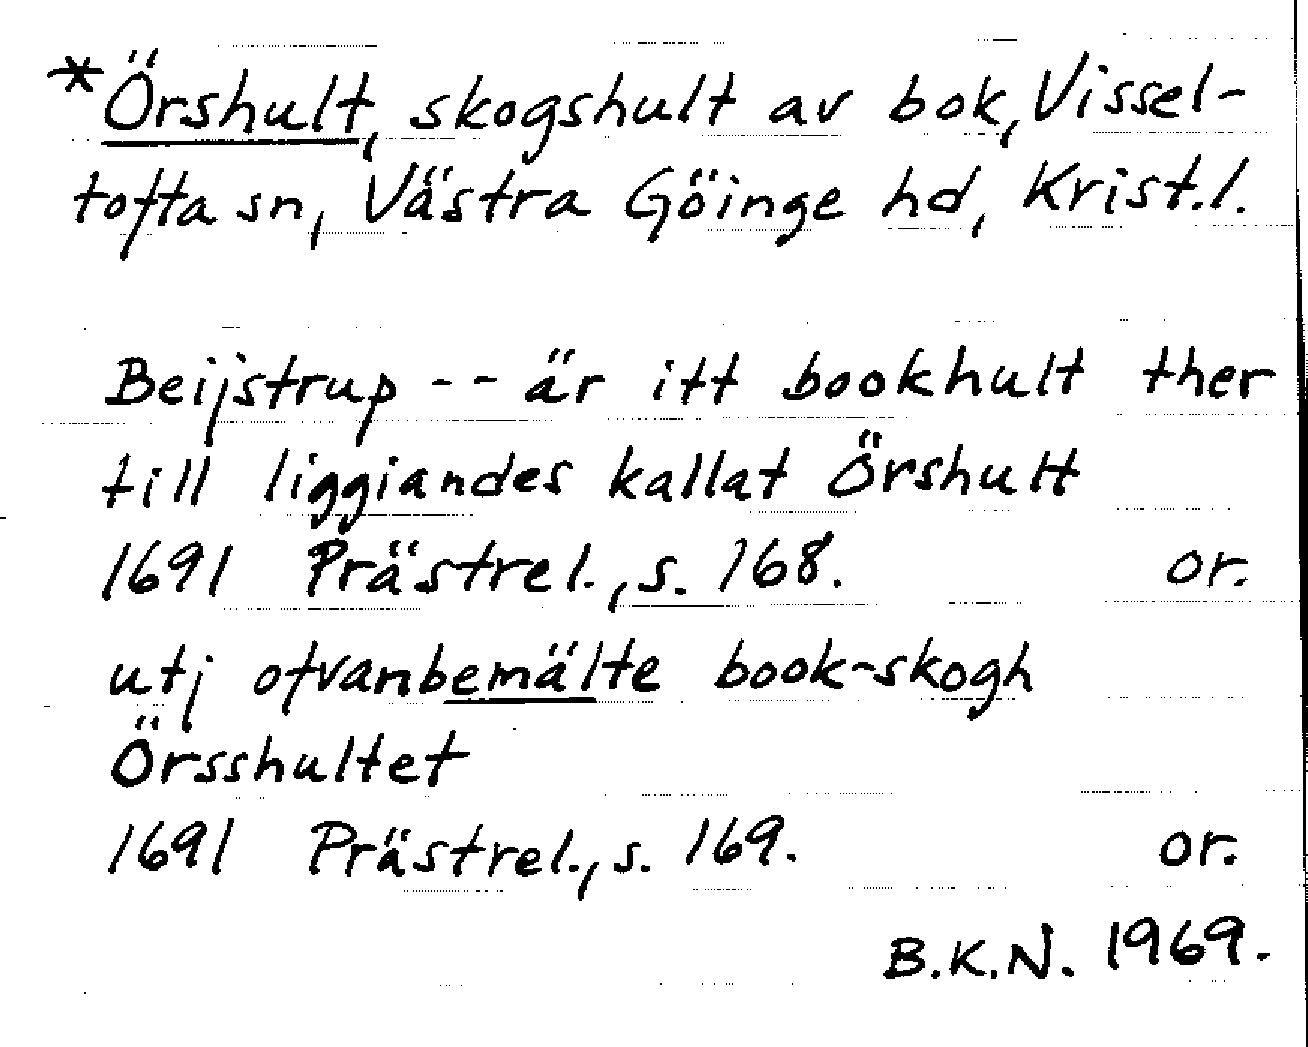 *Örshult, skogshult av bok, Vissel-
tofta sn, Västra Göinge hd, Krist.l.
Beijstrup -- är itt bookhult ther
till liggiandes kallat Örshult
1691 Prästrel., s. 168. or.
utj ofvanbemälte book-skogh
Örsshultet
1691 Prästrel., s. 169. or.
B.K.N. 1969.